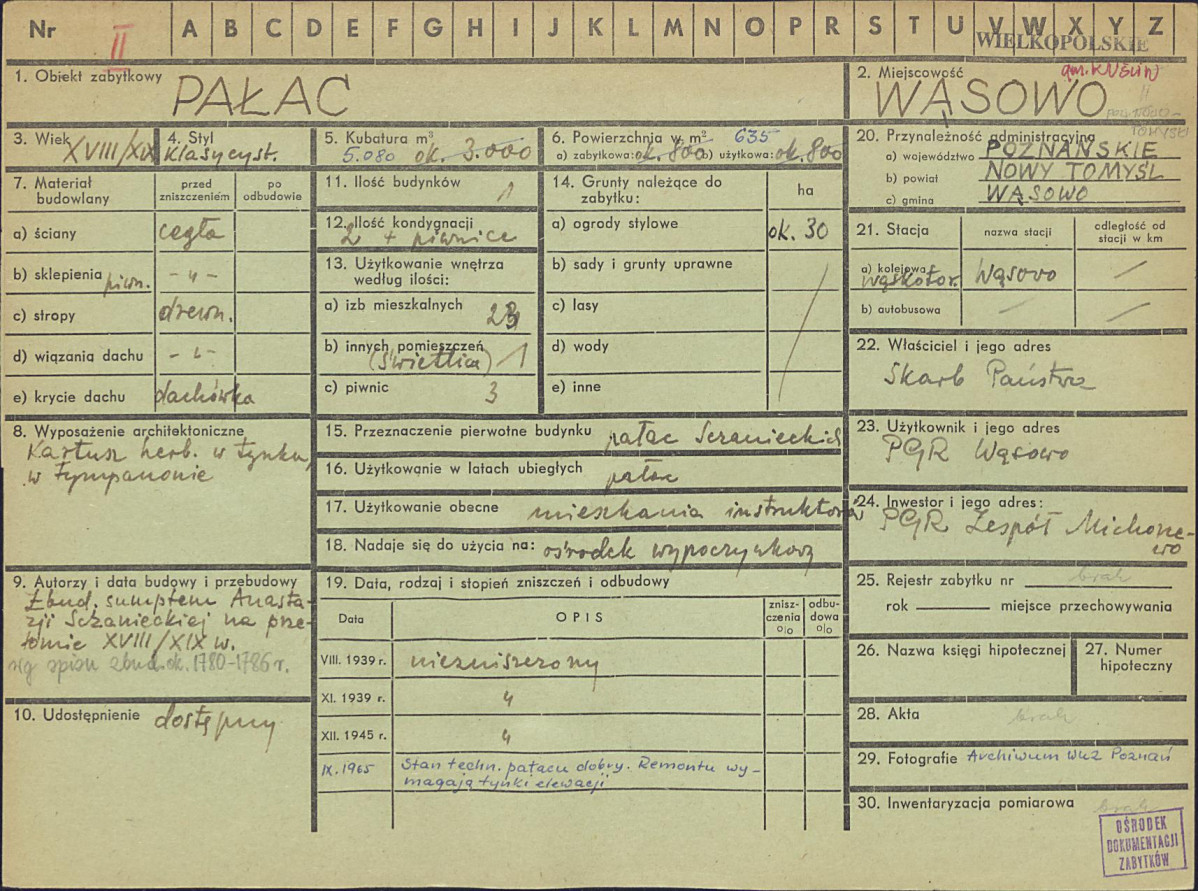 Nr II A B C D E F G H I J K L M N O P R S T U V W X Y Z
WIELKOPOLSKIE
1. Obiekt zabytkowy PAŁAC
2. Miejscowość WĄSOWO
gm. KUŚLIN
3. Wiek XVIII/XIX
4. Styl klasycyst.
5. Kubatura m³
5.080 ok. 3.000
6. Powierzchnia w m² 635
a) zabytkowa: ok. 800 b) użytkowa: ok. 800
20. Przynależność administracyjna
a) województwo POZNAŃSKIE
b) powiat NOWY TOMYŚL
c) gmina WĄSOWO
7. Materiał budowlany
przed zniszczeniem
po odbudowie
a) ściany cegła
b) sklepienia piwn. -"-
c) stropy drewn.
d) wiązania dachu -"-
e) krycie dachu dachówka
11. Ilość budynków 1
12. Ilość kondygnacji
2 + piwnice
13. Użytkowanie wnętrza
według ilości:
a) izb mieszkalnych
b) innych pomieszczeń
(świetlica) 1
c) piwnic 3
14. Grunty należące do
zabytku:
ha
a) ogrody stylowe ok. 30
b) sady i grunty uprawne
c) lasy
d) wody
e) inne
21. Stacja
nazwa stacji
odległość od
stacji w km
a) kolejowa wąskotor. Wąsowo
b) autobusowa
22. Właściciel i jego adres
Skarb Państwa
8. Wyposażenie architektoniczne
Kartusz herb. w tynku,
w tympanonie
15. Przeznaczenie pierwotne budynku pałac Sczanieckich
16. Użytkowanie w latach ubiegłych pałac
17. Użytkowanie obecne mieszkania instruktorów
18. Nadaje się do użycia na: ośrodek wypoczynkowy
23. Użytkownik i jego adres
PGR Wąsowo
24. Inwestor i jego adres:
PGR Zespół Michorze-
wo
9. Autorzy i data budowy i przebudowy
Zbud. sumptem Anasta-
zji Sczanieckiej na prze-
łomie XVIII/XIX w.
wg spisu zbud. ok. 1780-1786 r.
10. Udostępnienie dostępny
19. Data, rodzaj i stopień zniszczeń i odbudowy
Data
OPIS
znisz-
czenia
%
odbu-
dowa
%
VIII. 1939 r. niezniszczony
XI. 1939 r. "
XII. 1945 r. "
IX. 1965 Stan techn. pałacu dobry. Remontu wy-
magają tynki elewacji
25. Rejestr zabytku nr brak
rok miejsce przechowywania
26. Nazwa księgi hipotecznej
27. Numer
hipoteczny
28. Akta brak
29. Fotografie Archiwum WKZ Poznań
30. Inwentaryzacja pomiarowa brak
OŚRODEK
DOKUMENTACJI
ZABYTKÓW